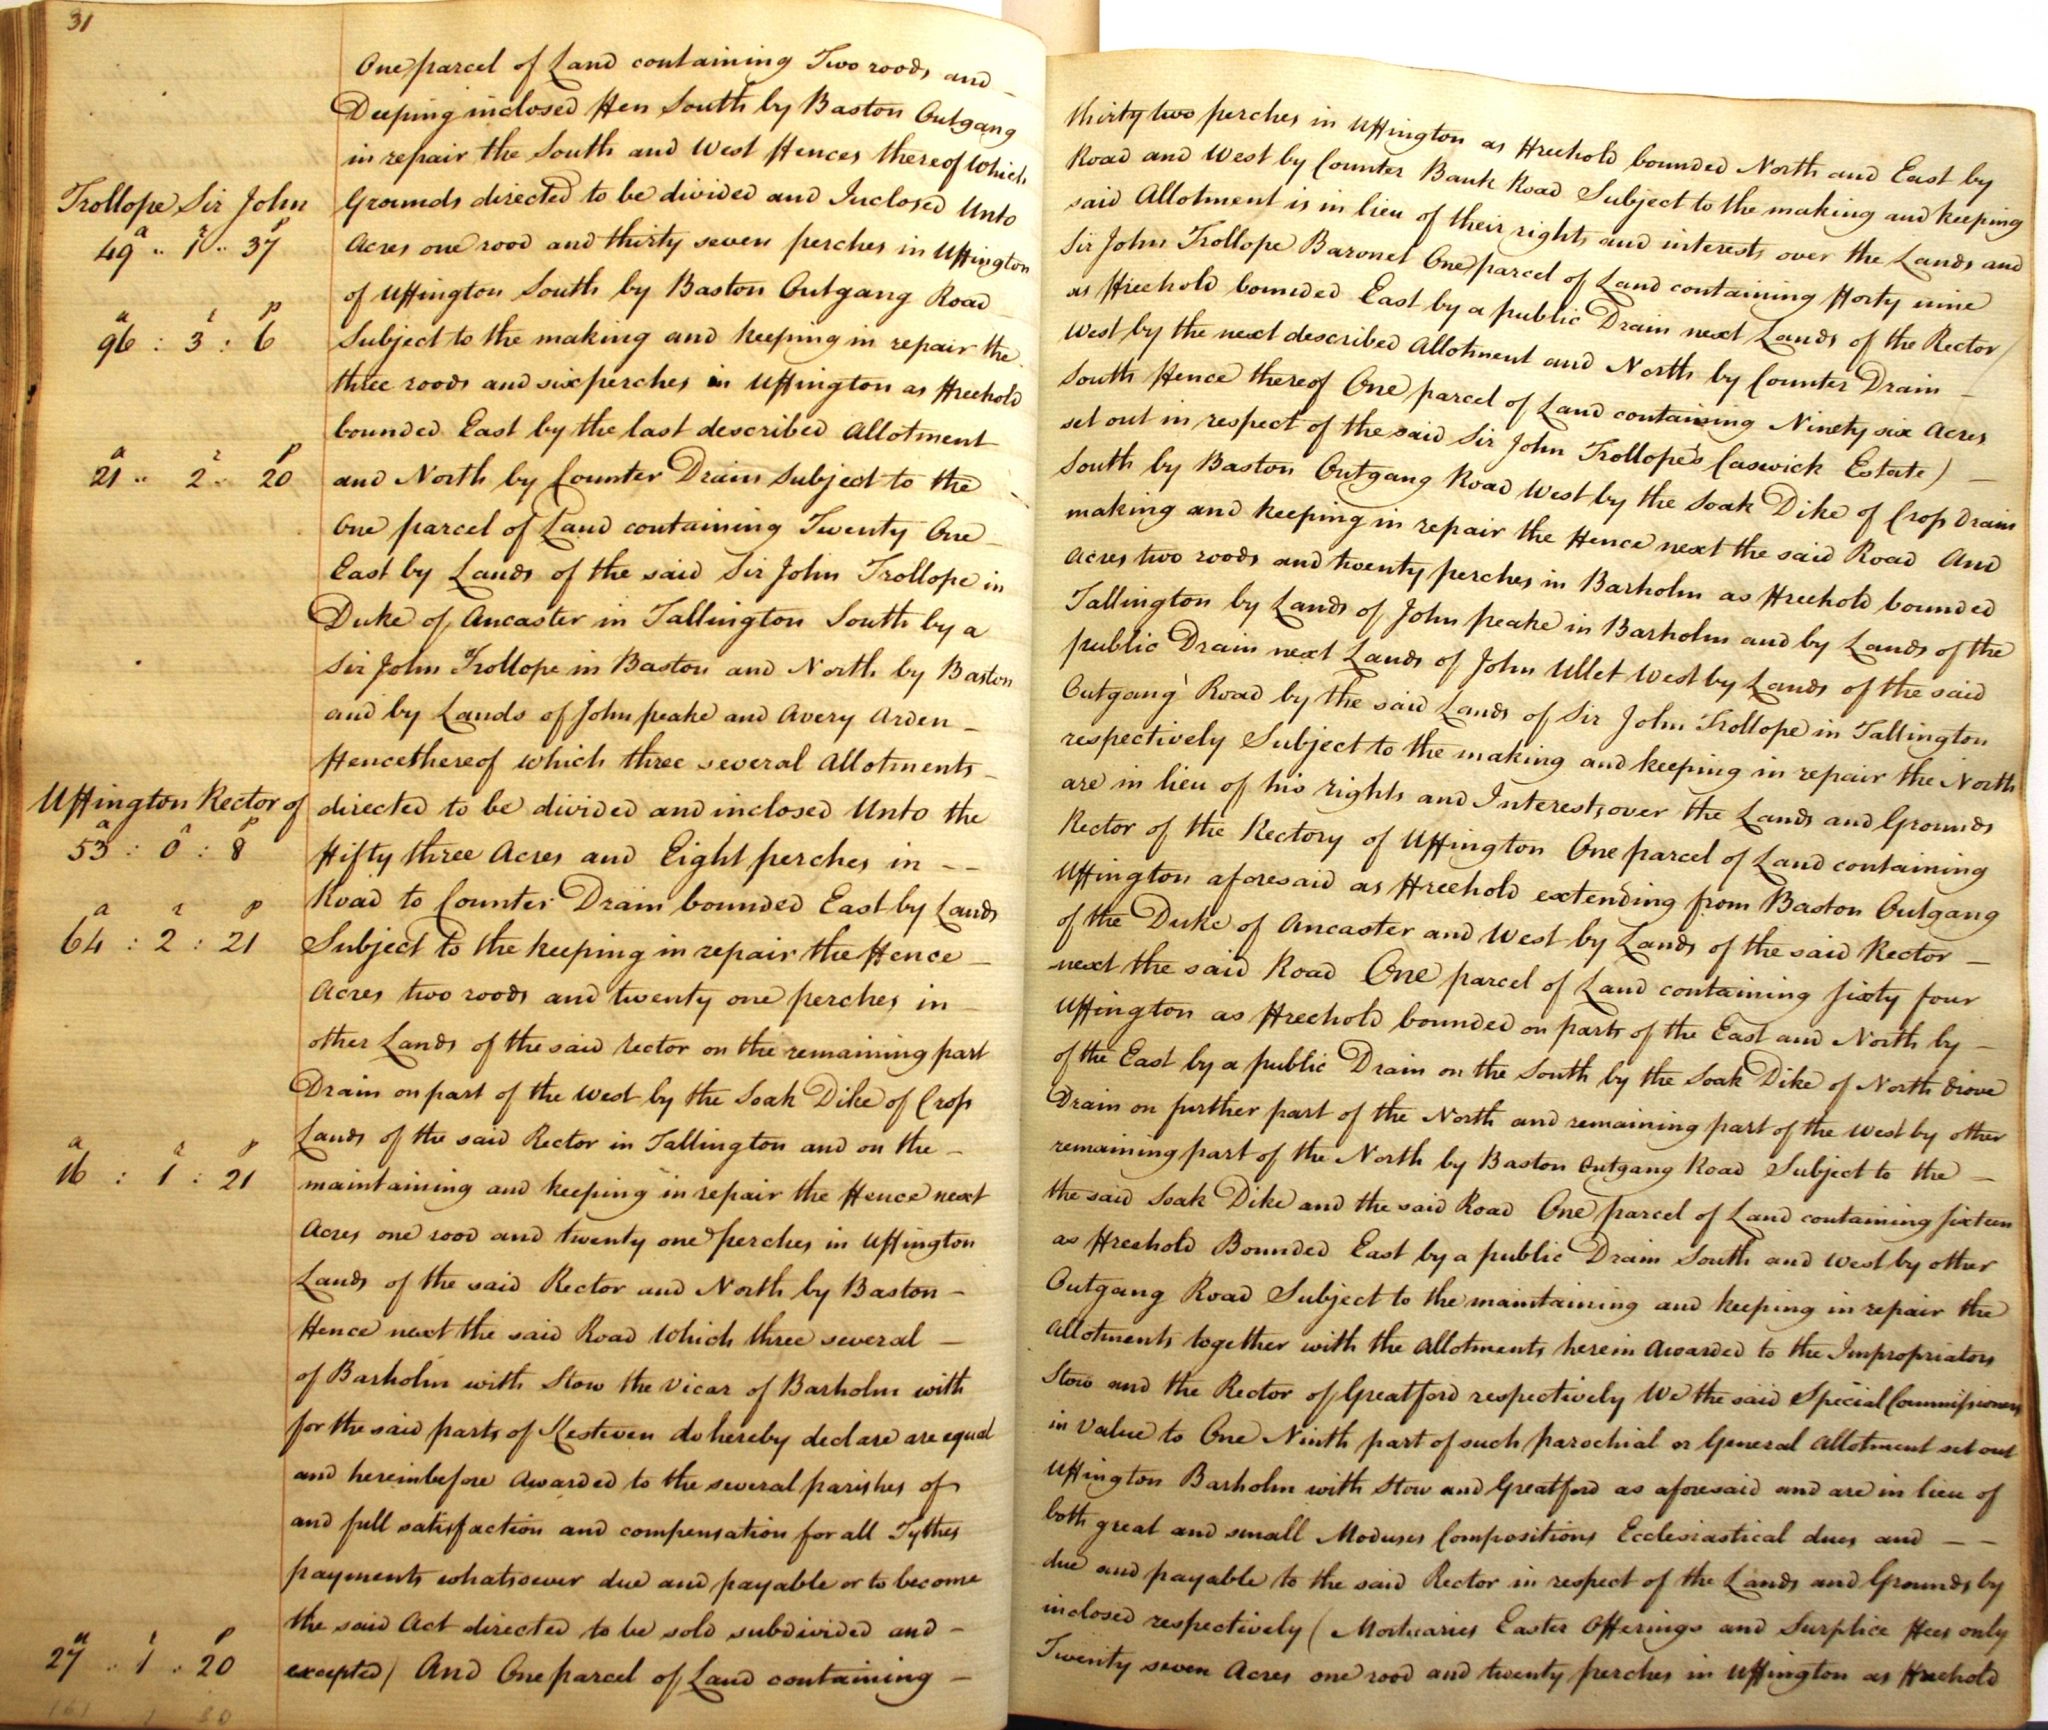 31
One parcel of Land containing Two roods and thirty two perches in Uffington as Freehold bounded North and East by
Deeping inclosed Fen South by Baston Outgang Road and West by Counter Bank Road Subject to the making and keeping
in repair the South and West Fences thereof Which said Allotment is in lieu of their rights and interests over the Lands and
Trollope Sir John
Grounds directed to be divided and Inclosed Unto Sir John Trollope Baronet One parcel of Land containing Forty nine
49a .. 1r .. 37p
Acres one rood and thirty seven perches in Uffington as Freehold bounded East by a public Drain next Lands of the Rector
of Uffington South by Baston Outgang Road West by the next described Allotment and North by Counter Drain
96a : 3r : 6p
Subject to the making and keeping in repair the South Fence thereof One parcel of Land containing Ninety six Acres
three roods and six perches in Uffington as Freehold set out in respect of the said Sir John Trollope's Caswick Estate)
bounded East by the last described Allotment South by Baston Outgang Road West by the Soak Dike of Crop Drain
21a .. 2r .. 20p
and North by Counter Drain Subject to the making and keeping in repair the Fence next the said Road And
One parcel of Land containing Twenty One Acres two roods and twenty perches in Barholm as Freehold bounded
East by Lands of the said Sir John Trollope in Tallington by Lands of John Peake in Barholm and by Lands of the
Duke of Ancaster in Tallington South by a public Drain next Lands of John Ullet West by Lands of the said
Sir John Trollope in Baston and North by Baston Outgang Road by the said Lands of Sir John Trollope in Tallington
and by Lands of John Peake and Avery Arden respectively Subject to the making and keeping in repair the North
Fence thereof which three several Allotments are in lieu of his rights and Interests over the Lands and Grounds
Uffington Rector of
directed to be divided and inclosed Unto the Rector of the Rectory of Uffington One parcel of Land containing
53a : 0r : 8p
Fifty three Acres and Eight perches in Uffington aforesaid as Freehold extending from Baston Outgang
Road to Counter Drain bounded East by Lands of the Duke of Ancaster and West by Lands of the said Rector
64a : 2r : 21p
Subject to the keeping in repair the Fence next the said Road One parcel of Land containing sixty four
Acres two roods and twenty one perches in Uffington as Freehold bounded on parts of the East and North by
other Lands of the said Rector on the remaining part of the East by a public Drain on the South by the Soak Dike of North Drove
Drain on part of the West by the Soak Dike of Crop Drain on further part of the North and remaining part of the West by other
Lands of the said Rector in Tallington and on the remaining part of the North by Baston Outgang Road Subject to the
16a : 1r : 21p
maintaining and keeping in repair the Fence next the said Soak Dike and the said Road One parcel of Land containing sixteen
Acres one rood and twenty one perches in Uffington as Freehold Bounded East by a public Drain South and West by other
Lands of the said Rector and North by Baston Outgang Road Subject to the maintaining and keeping in repair the
Fence next the said Road Which three several Allotments together with the Allotments herein Awarded to the Impropriators
of Barholm with Stow the Vicar of Barholm with Stow and the Rector of Greatford respectively We the said Special Commissioners
for the said parts of Kesteven do hereby declare are equal in Value to One Ninth part of such parochial or General Allotment set out
and hereinbefore Awarded to the several parishes of Uffington Barholm with Stow and Greatford as aforesaid and are in lieu of
and full satisfaction and compensation for all Tythes both great and small Moduses Compositions Ecclesiastical dues and
payments whatsoever due and payable or to become due and payable to the said Rector in respect of the Lands and Grounds by
the said Act directed to be sold subdivided and inclosed respectively (Mortuaries Easter Offerings and Surplice Fees only
27a .. 1r .. 20p
excepted) And One parcel of Land containing Twenty seven Acres one rood and twenty perches in Uffington as Freehold